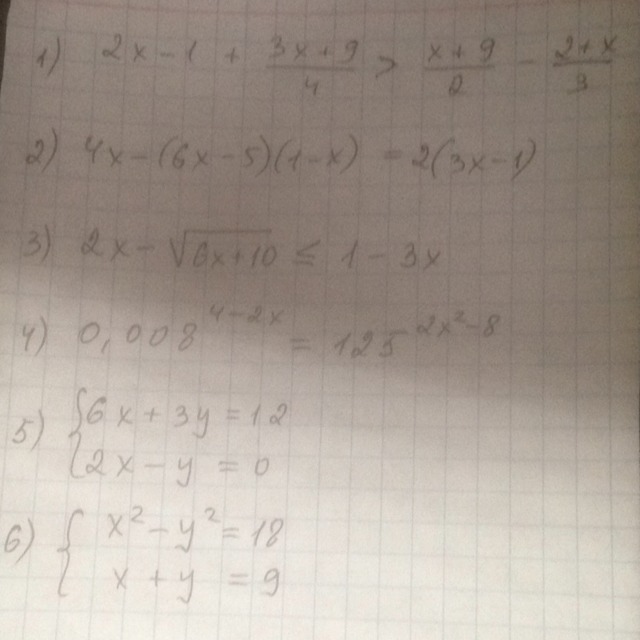 1) 2x - 1 + (3x+9)/4 > (x+9)/2 - (2+x)/3
2) 4x - (6x - 5)(4 - x) = 2(3x - 1)
3) 2x - √(6x+10) ≤ 1 - 3x
4) 0,0008^(4-2x) = 125^(2x²-8)
5) { 6x + 3y = 12
2x - y = 0
6) { x² - y² = 18
x + y = 9